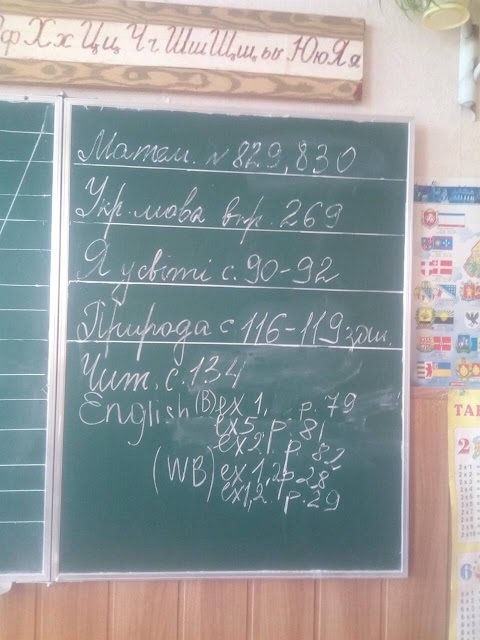 ф Хх Цц Чч Шш Щщ ь Юю Яя
Матем. № 829, 830
Укр. мова впр. 269
Я у світі с. 90-92
Природа с 116-119 зош.
Чит. с. 134
English (B) ex 1, p. 79
ex5, p. 81
ex 2, p. 82
(WB) ex 1,2 p. 28
ex1,2 p. 29
ТАБ
2
6